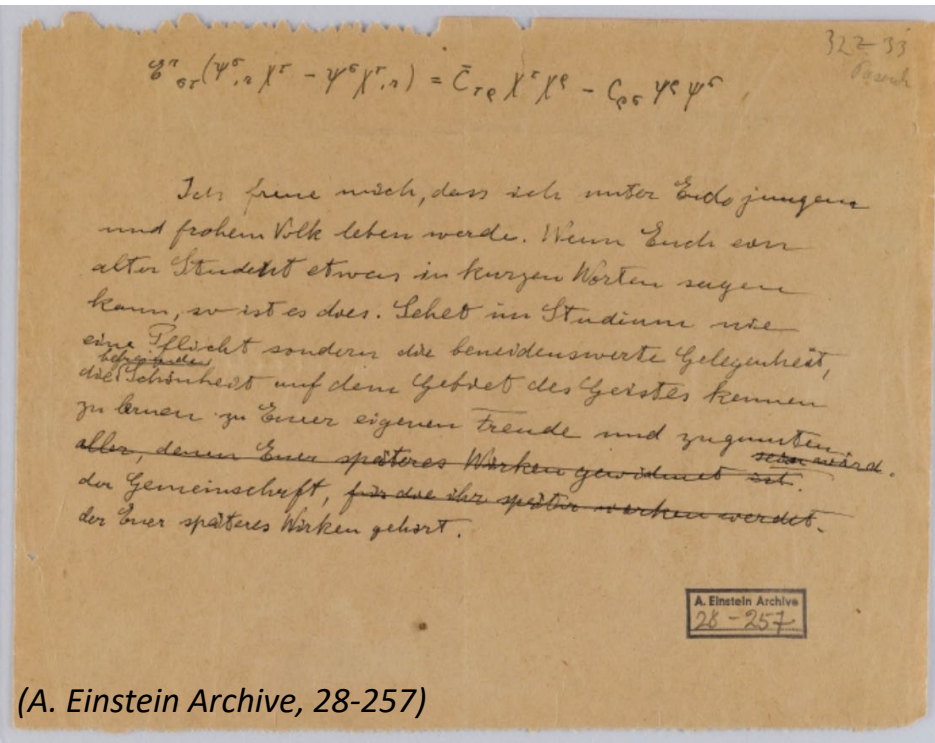 322-33
𝔈^r_{στ}(ψ^σ_{,r} χ^τ − ψ^σ χ^τ_{,r}) = C̄_{τρ} χ^τ χ^ρ − C_{ρσ} ψ^ρ ψ^σ
Ich freue mich, dass ich unter Euch jungem
und frohem Volk leben werde. Wenn Euch ein
alter Student etwas in kurzen Worten sagen
kann, so ist es dies. Sehet im Studium nie
eine Pflicht sondern die beneidenswerte Gelegenheit,
befreiende
die Schönheit auf dem Gebiet des Geistes kennen
zu lernen zu Euer eigenen Freude und zugunsten
aller, denen Euer späteres Wirken gewidmet ist. sein wird.
der Gemeinschaft, für die ihr später werken werdet.
der Euer späteres Wirken gehört.
A. Einstein Archive
28-257
(A. Einstein Archive, 28-257)